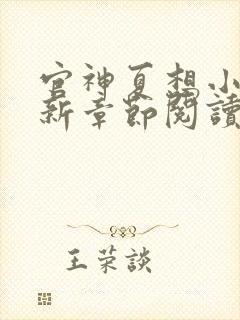 官神夏想小
新章節閱讀
王荣談